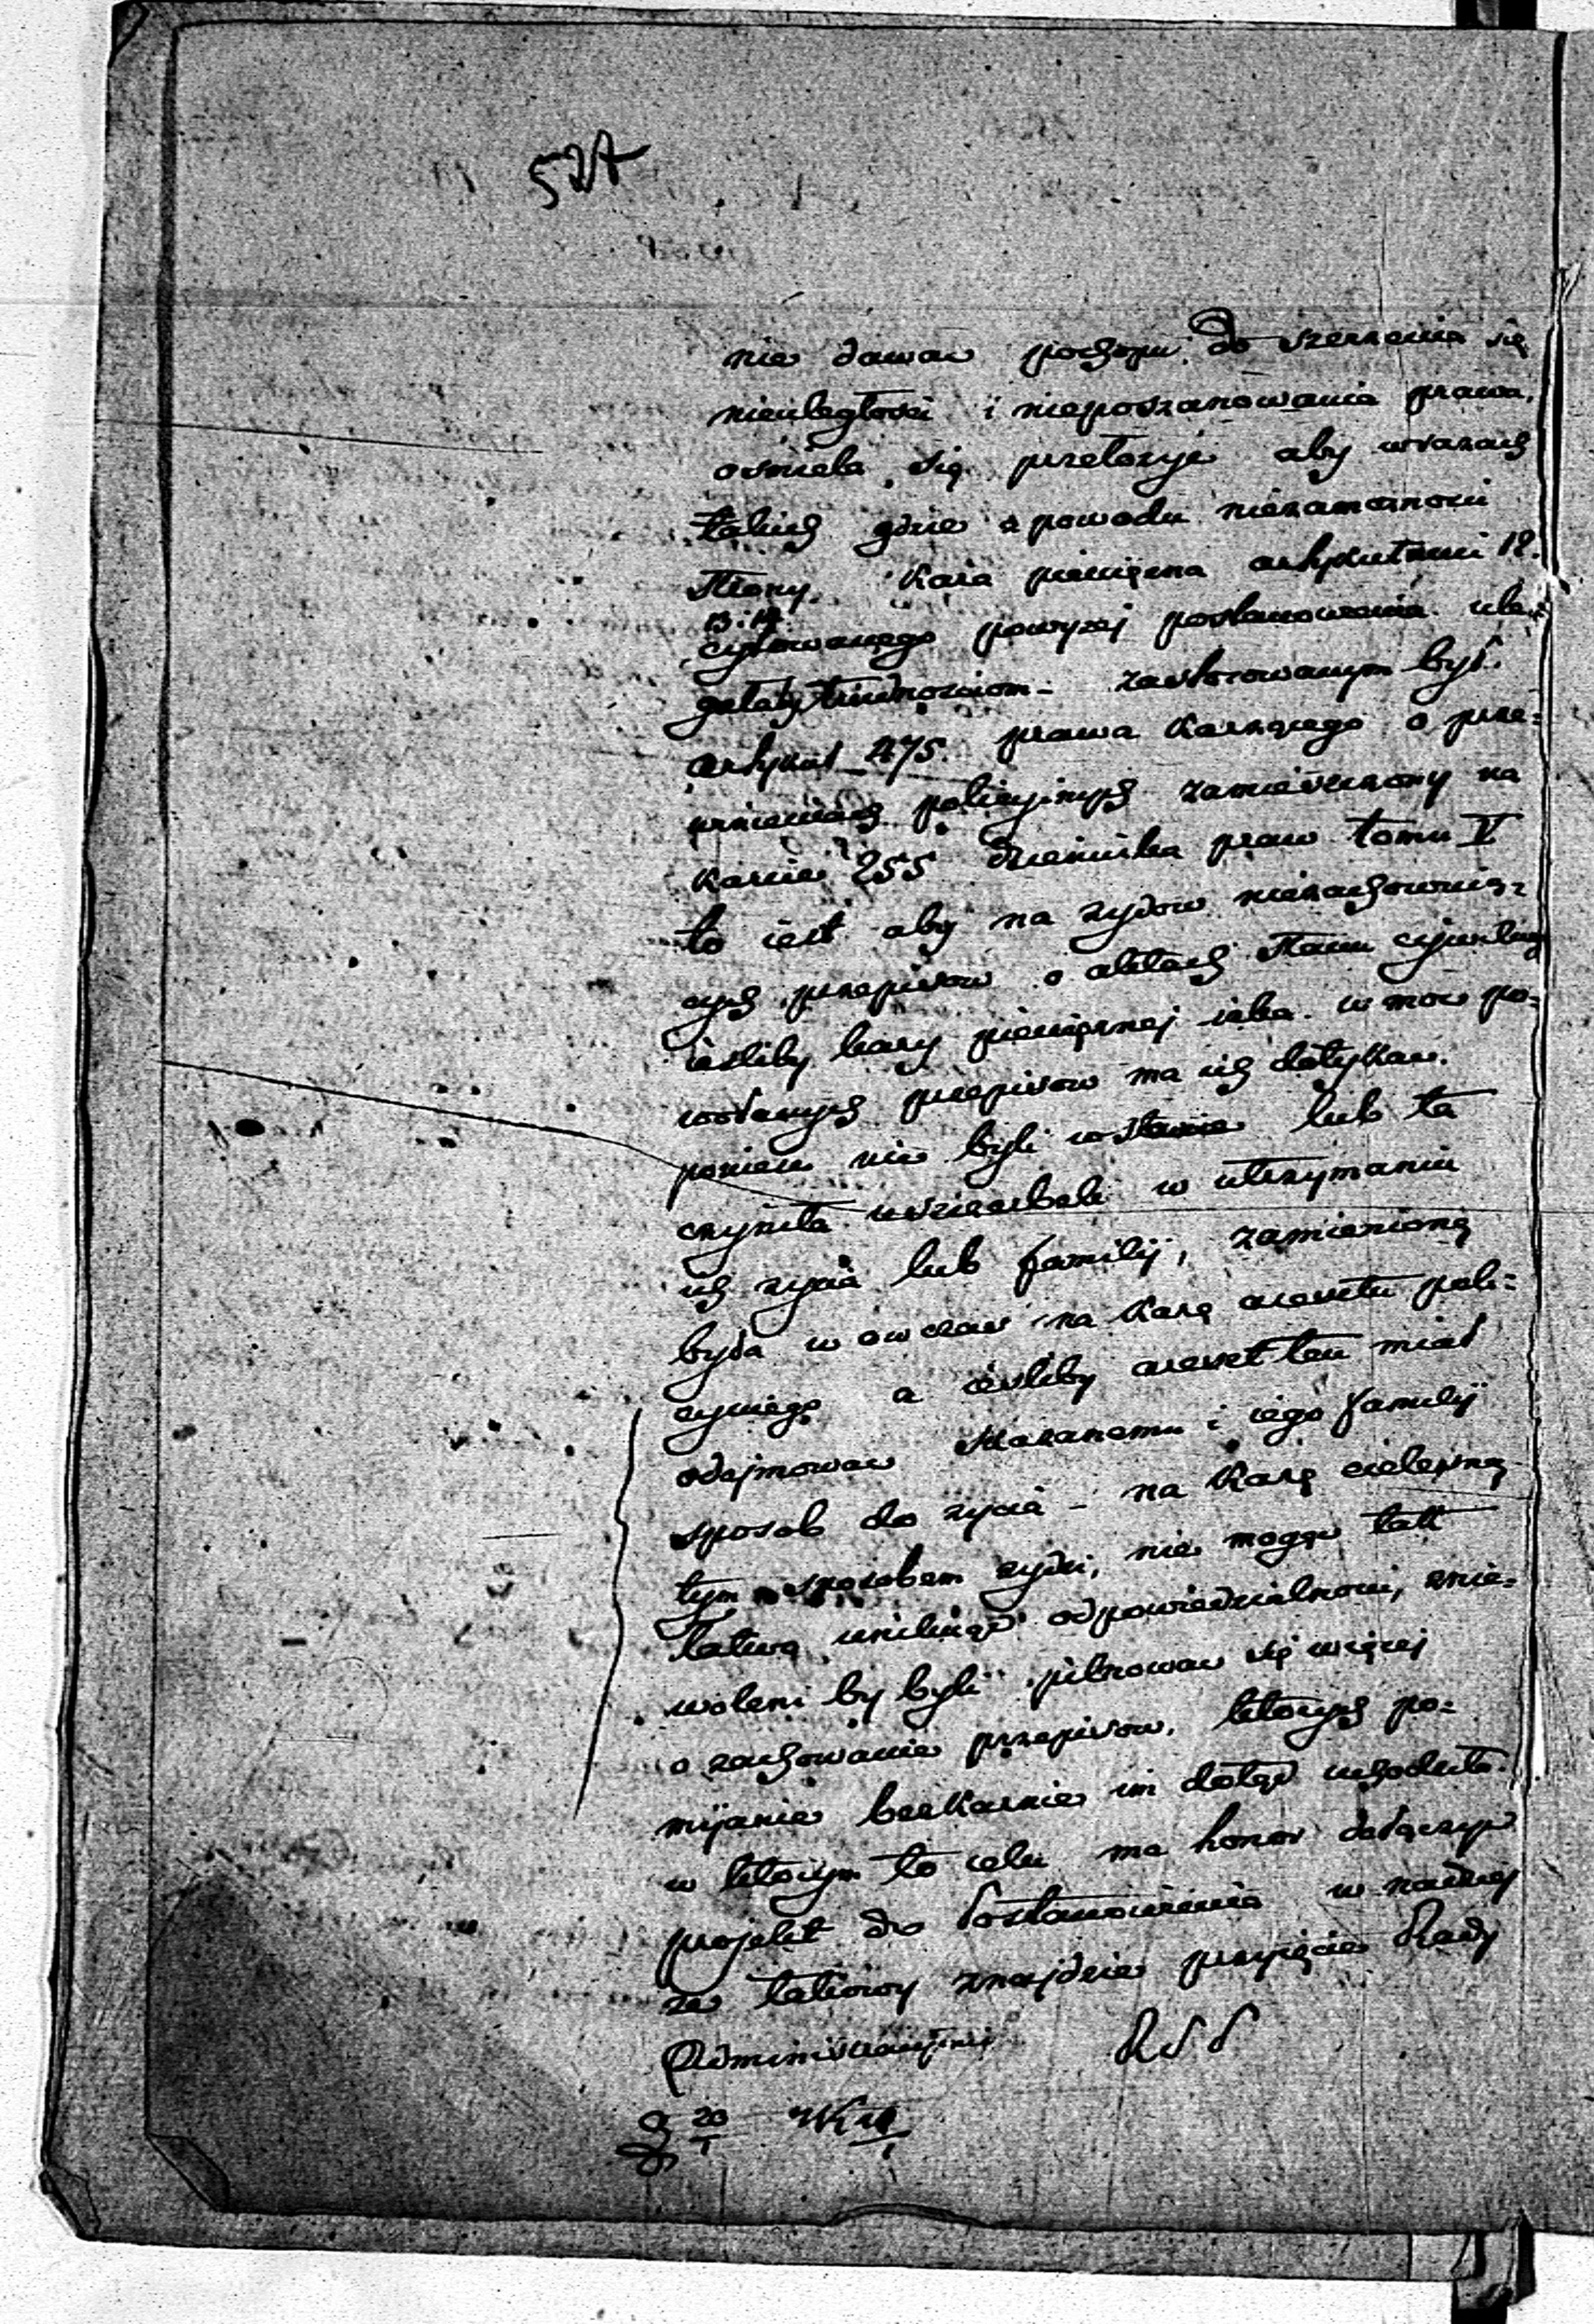 527
nie dawać pochopu do szerzenia się
nieuległości i nieposzanowania prawa,
ośmiela się przełożyć aby w razach
takich gdzie z powodu niezamożności
strony kara pieniężna artykułami 12.
13. i 14.
cytowanego powyżej postanowienia ule-
gałaby trudnościom - zastosowanym był
artykuł 475. prawa karzącego o prze-
winieniach policyjnych zamieszczony na
karcie 255 dziennika praw tomu V
to iest aby na żydów niezachowuią-
cych przepisów o aktach stanu cywilnego
ieśliby kary pieniężnej iaka w moc po-
wołanych przepisów ma ich dotykać.
ponieść nie byli w stanie lub ta
czyniła uszczerbek w utrzymaniu
ich życia lub familij, zamienioną
była w ow czas na karę aresztu poli-
cyinego a ieśliby areszt ten miał
odejmować skazanemu i iego familij
sposób do życia - na karę cielesną
tym sposobem żydzi, nie mogąc tak
łatwo uniknąć odpowiedzialności, znie-
woleni by byli pilnować się więcej
o zachowanie przepisów, których po-
mijanie bezkarnie im dotąd uchodziło.
w którym to celu ma honor dołączyć
projekt do Postanowienia w nadziei
że takowy znajdzie przyjęcie Rady
Administracyjnej
20